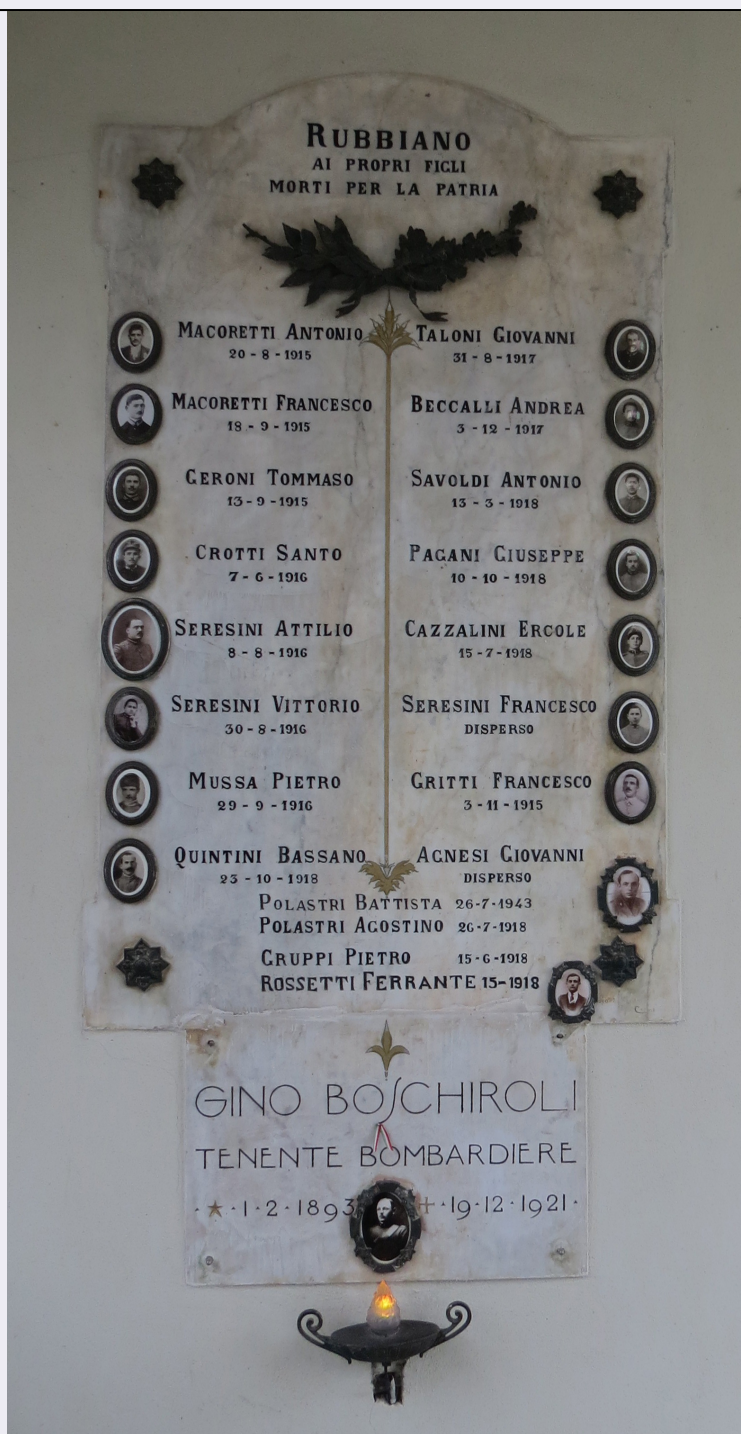 RUBBIANO
AI PROPRI FIGLI
MORTI PER LA PATRIA
MACORETTI ANTONIO
20 - 8 - 1915
MACORETTI FRANCESCO
18 - 9 - 1915
GERONI TOMMASO
13 - 9 - 1915
CROTTI SANTO
7 - 6 - 1916
SERESINI ATTILIO
8 - 8 - 1916
SERESINI VITTORIO
30 - 8 - 1916
MUSSA PIETRO
29 - 9 - 1916
QUINTINI BASSANO
23 - 10 - 1918
TALONI GIOVANNI
31 - 8 - 1917
BECCALLI ANDREA
3 - 12 - 1917
SAVOLDI ANTONIO
13 - 3 - 1918
PAGANI GIUSEPPE
10 - 10 - 1918
CAZZALINI ERCOLE
15 - 7 - 1918
SERESINI FRANCESCO
DISPERSO
GRITTI FRANCESCO
3 - 11 - 1915
AGNESI GIOVANNI
DISPERSO
POLASTRI BATTISTA 26-7-1943
POLASTRI AGOSTINO 26-7-1918
GRUPPI PIETRO 15-6-1918
ROSSETTI FERRANTE 15-1918
GINO BOSCHIROLI
TENENTE BOMBARDIERE
1·2·1893 19·12·1921